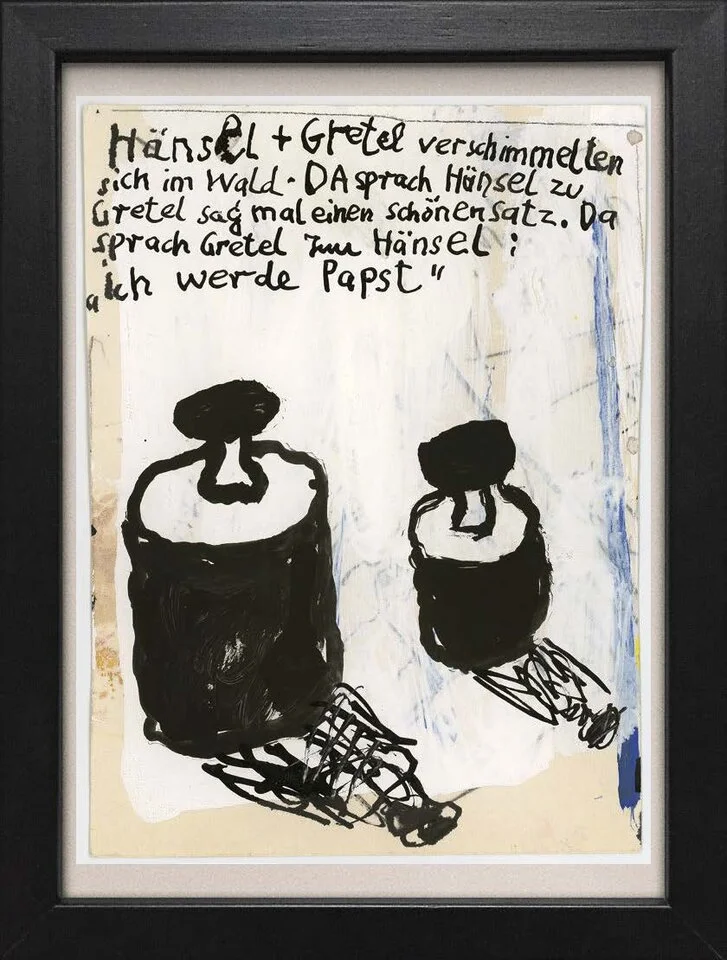 Hänsel + Gretel verschimmelten
sich im Wald. DA sprach Hänsel zu
Gretel sag mal einen schönen satz. Da
sprach Gretel zum Hänsel :
„Ich werde Papst“